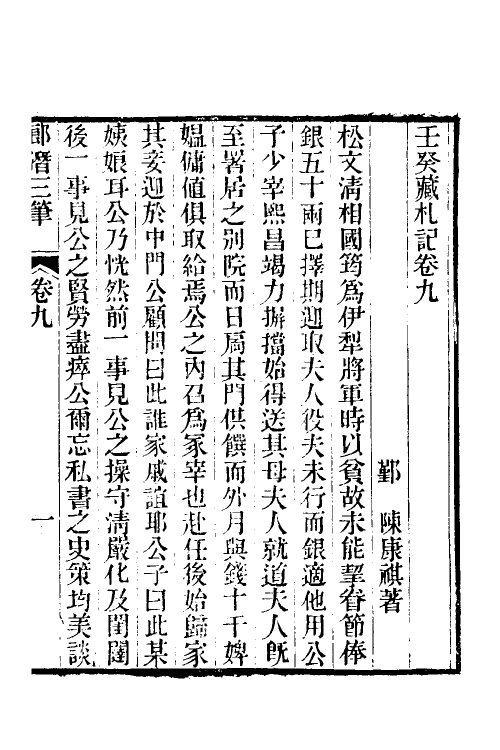 壬癸藏札記卷九
鄞　陳康祺著
松文清相國筠爲伊犁將軍時以貧故未能挈眷節俸
銀五十兩已擇期迎取夫人役夫未行而銀適他用公
子少宰熙昌竭力摒擋始得送其母夫人就道夫人旣
至署居之别院而日扃其門供饌而外月與錢十千婢
媼傭値俱取給焉公之內召爲冢宰也赴任後始歸家
其妾迎於中門公顧問曰此誰家戚誼耶公子曰此某
姨娘耳公乃恍然前一事見公之操守清嚴化及閨闥
後一事見公之賢勞盡瘁公爾忘私書之史策均美談
郎潛三筆
卷九
一